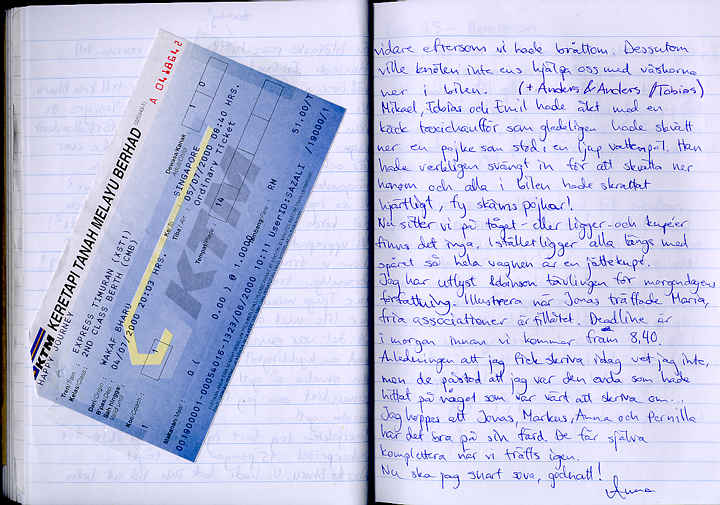 A 0418642
ORIGINAL
KTM KERETAPI TANAH MELAYU BERHAD
HAPPY JOURNEY
EXPRESS TIMURAN (XST1)
2ND CLASS BERTH (CMB)
WAKAF BHARU
04/07/2000 20:03 HRS.
SINGAPORE
05/07/2000 08:40 HRS.
Ordinary Ticket
Dewasa/Kanak
1 0
14
1
RM
51.00/T
0 ( 0.00 ) @ 1.0000
/19000/1
00190001-00056016-1323/06/2000 10:11 UserID:SAZALI
KTM
vidare eftersom vi hade bråttom. Dessutom
ville knölen inte ens hjälpa oss med väskorna
ner i bilen. (+Anders & Anders /Tobias)
Mikael, Tobias och Emil hade åkt med en
käck taxichaufför som gladeligen hade skvätt
ner en pojke som stod i en djup vattenpöl. Han
hade verkligen svängt in för att skvätta ner
honom och alla i bilen hade skrattat
hjärtligt, fy skäms pojkar!
Nu sitter vi på tåget - eller ligger - och kupéer
finns det inga. Istället ligger alla längs med
spåret så hela vagnen är en jättekupé.
Jag har utlyst tävlingen för morgondagens
författning. Illustrera när Jonas träffade Maria,
fria associationer är tillåtet. Deadline är
i morgon innan vi kommer fram 8.40.
Anledningen att jag fick skriva idag vet jag inte,
men de påstod att jag var den enda som hade
hittat på något som var värt att skriva om...
Jag hoppas att Jonas, Markus, Anna och Pernilla
har det bra på sin färd. De får själva
komplettera när vi träffs igen.
Nu ska jag snart sova, godnatt!
Anna